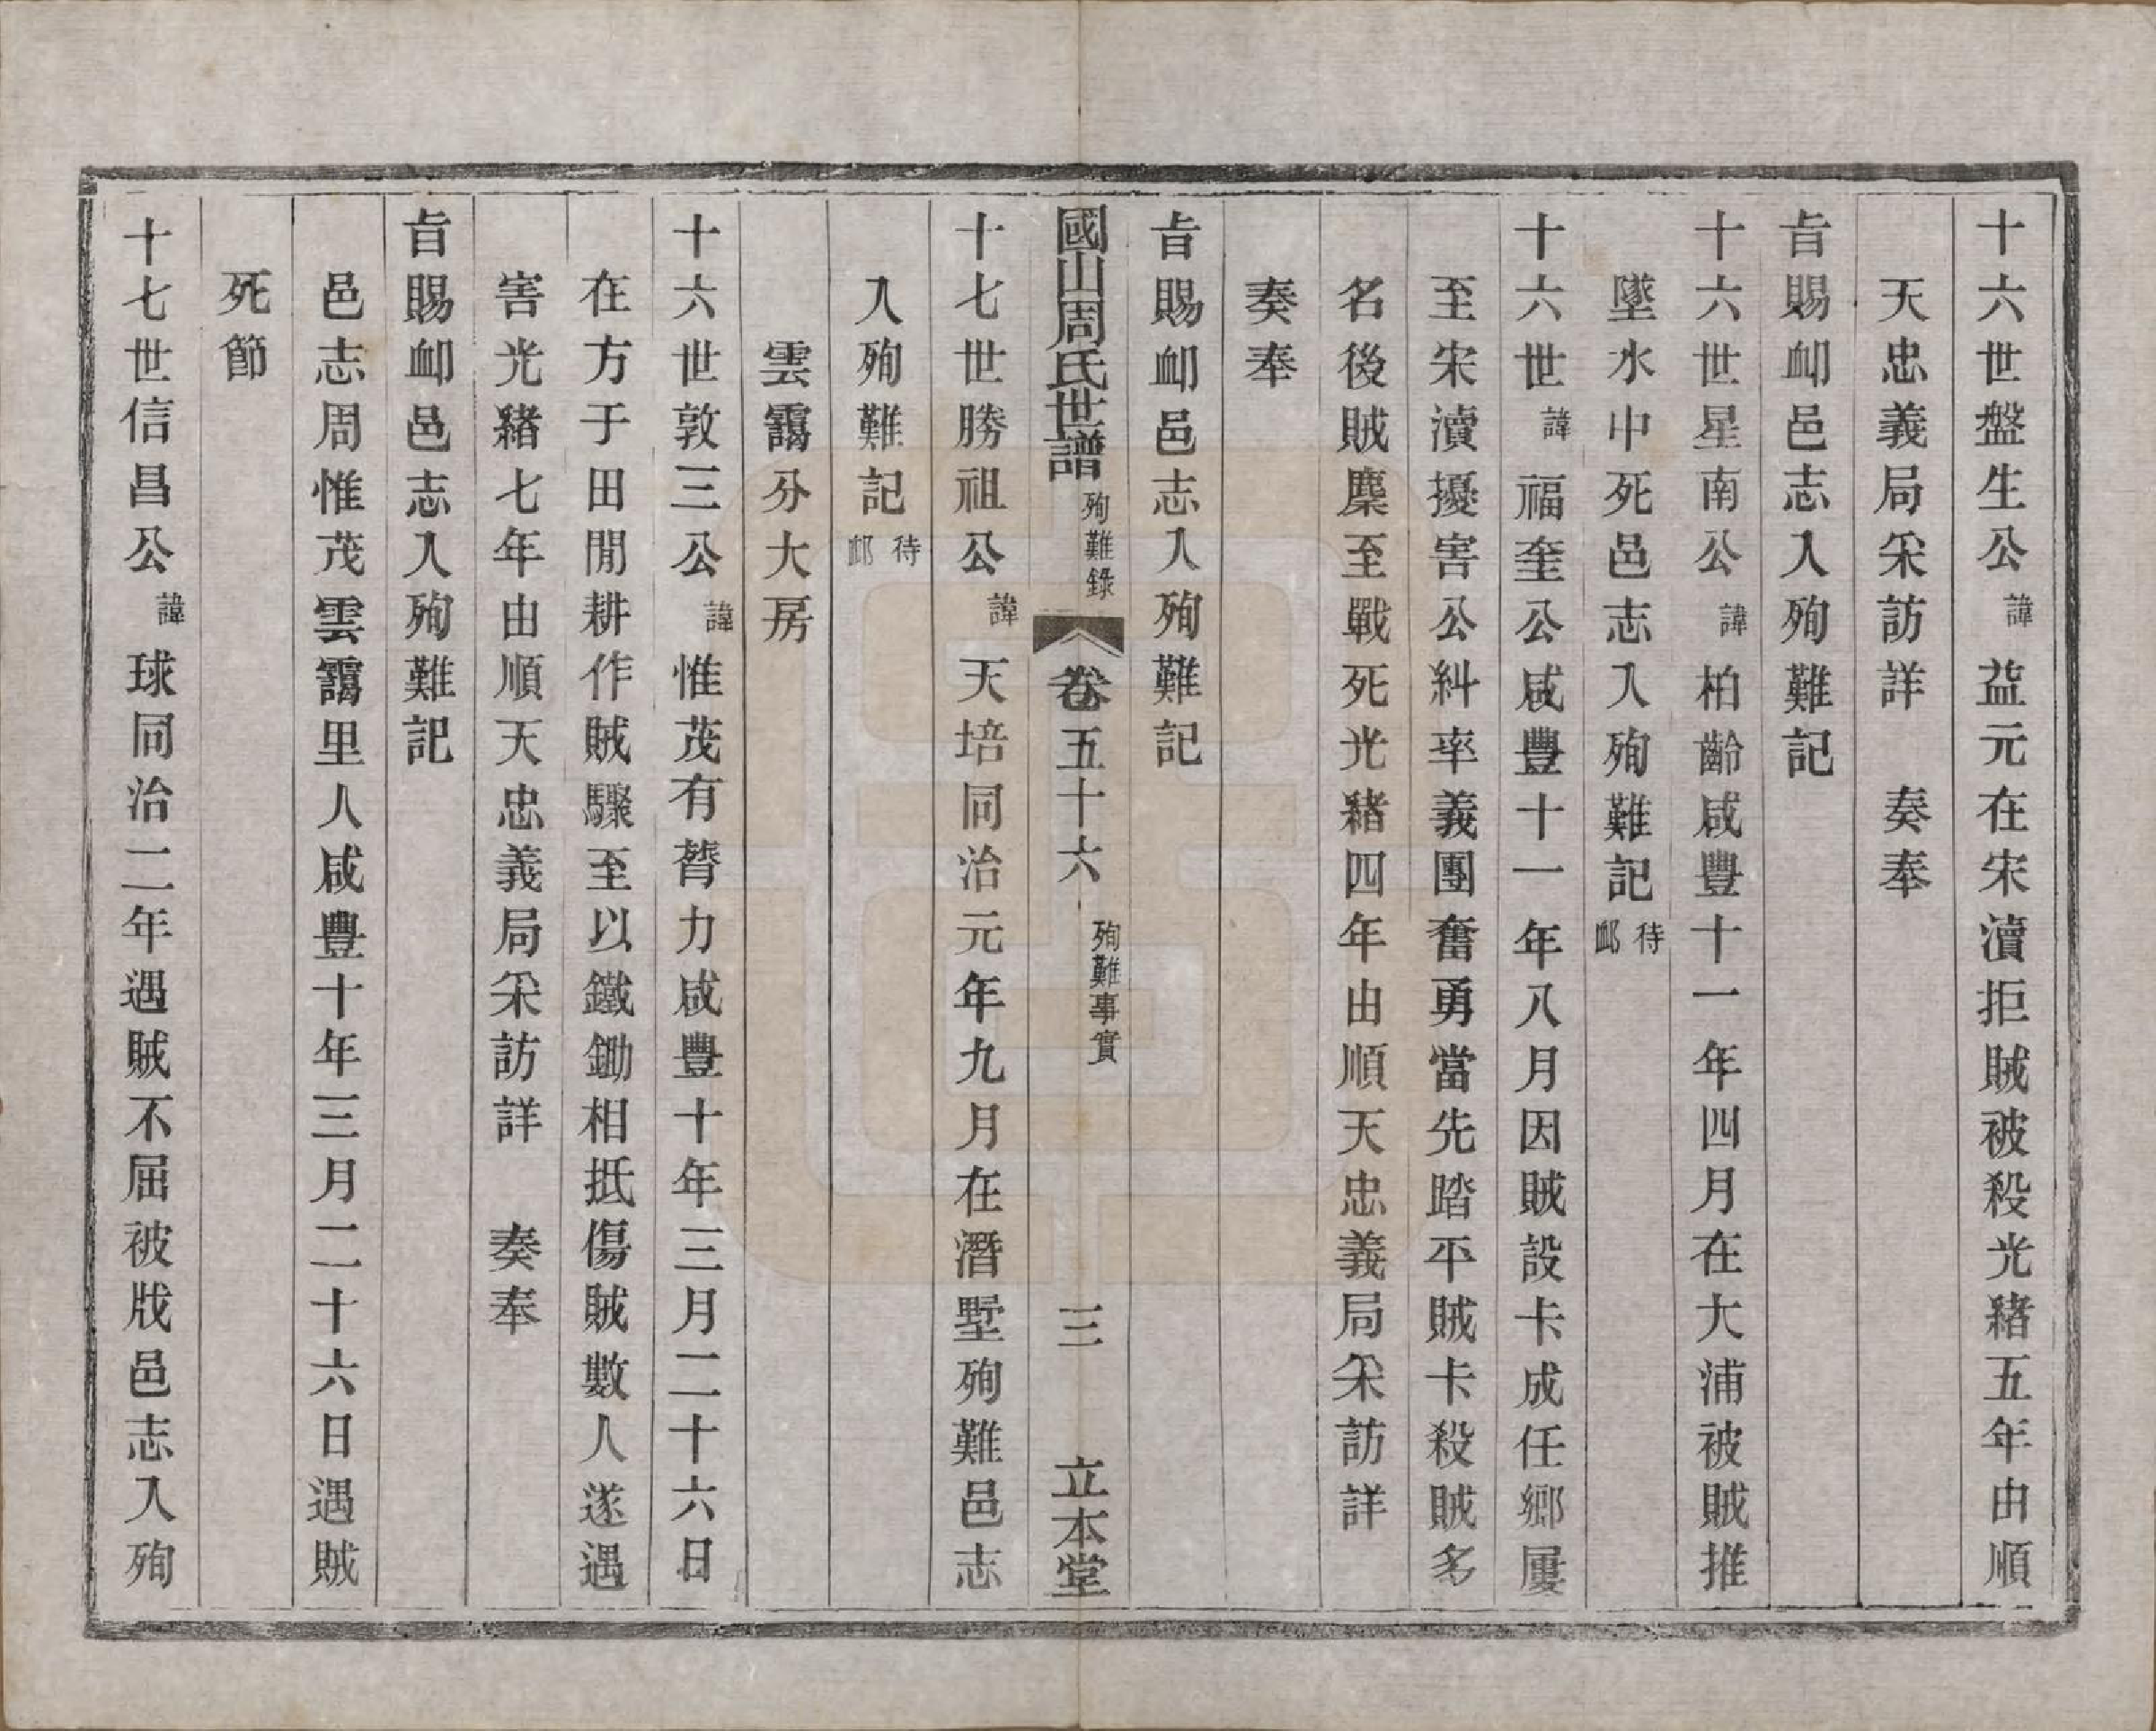 十六世盤生公諱益元在宋瀆拒賊被殺光緒五年由順
天忠義局采訪詳　奏奉
旨賜卹邑志入殉難記
十六世星南公諱柏齡咸豐十一年四月在大浦被賊推
墜水中死邑志入殉難記待卹
十六世諱福奎公咸豐十一年八月因賊設卡成任鄉屢
至宋瀆擾害公糾率義團奮勇當先踏平賊卡殺賊多
名後賊麇至戰死光緒四年由順天忠義局采訪詳
奏奉
旨賜卹邑志入殉難記
國山周氏世譜　殉難錄　卷五十六　殉難事實　三　立本堂
十七世勝祖公諱天培同治元年九月在潛墅殉難邑志
入殉難記待卹
雲靄分大房
十六世敦三公諱惟茂有膂力咸豐十年三月二十六日
在方于田閒耕作賊驟至以鐵鋤相抵傷賊數人遂遇
害光緒七年由順天忠義局采訪詳　奏奉
旨賜卹邑志入殉難記
邑志周惟茂雲靄里人咸豐十年三月二十六日遇賊
死節
十七世信昌公諱球同治二年遇賊不屈被戕邑志入殉